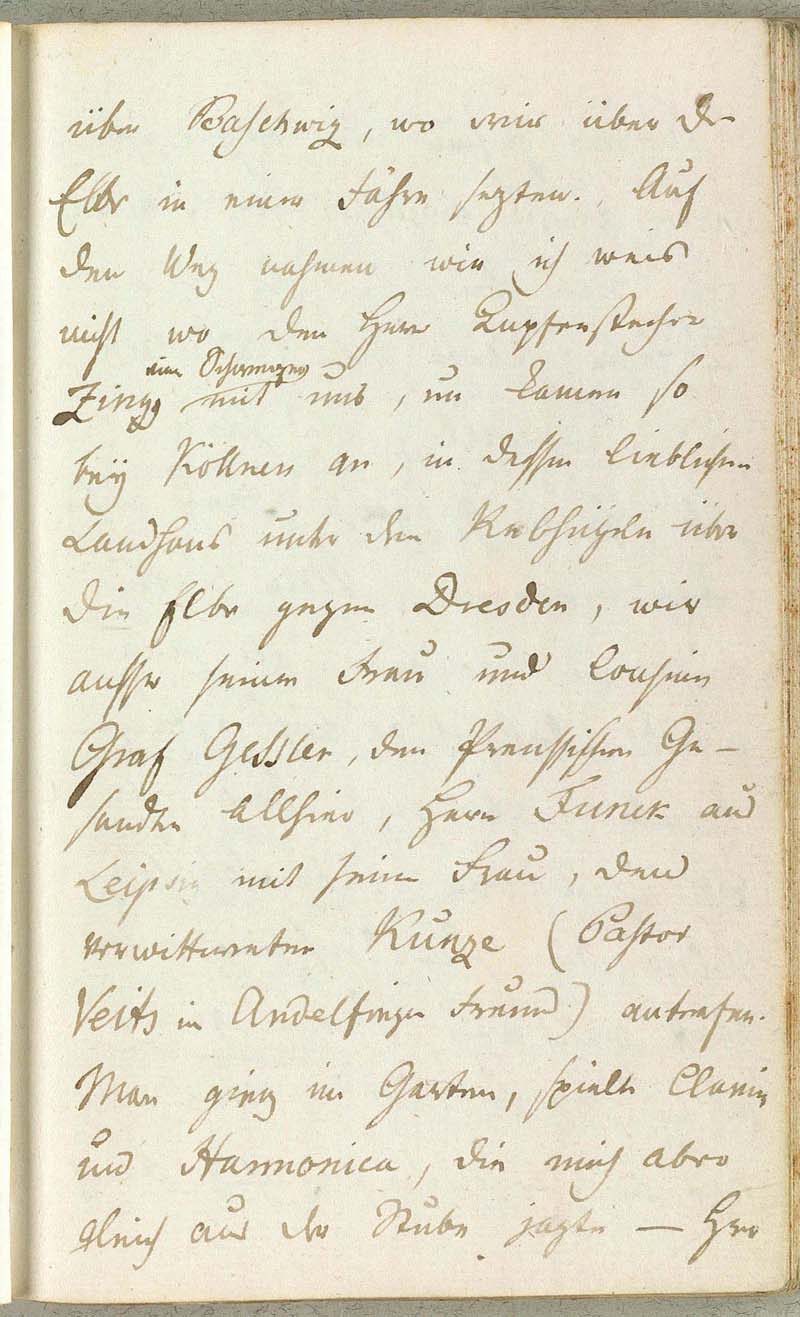 über Baschwiz, wo wir über die
Elbe in einer Fähre sezten. Auf
den Weg nahmen wir ich weis
nicht wo den Herr Kupferstecher
ein Schweizer
Zingg mit uns, un kamen so
bey Köllners an, in dessen lieblichem
Landhaus unter den Rebhügeln über
die Elbe gegen Dresden, wir
ausser seiner Frau und Cousine
Graf Gessler, den Preussischen Ge-
sandten allhier, Herr Funck aus
Leipzig mit seiner Frau, den
verwittweten Kunze (Pastor
Veiths in Andelfingen Freund) antrafen.
Man gieng im Garten, spielte Clavier
und Harmonica, die mich aber
gleich aus der Stube jagte — Herr